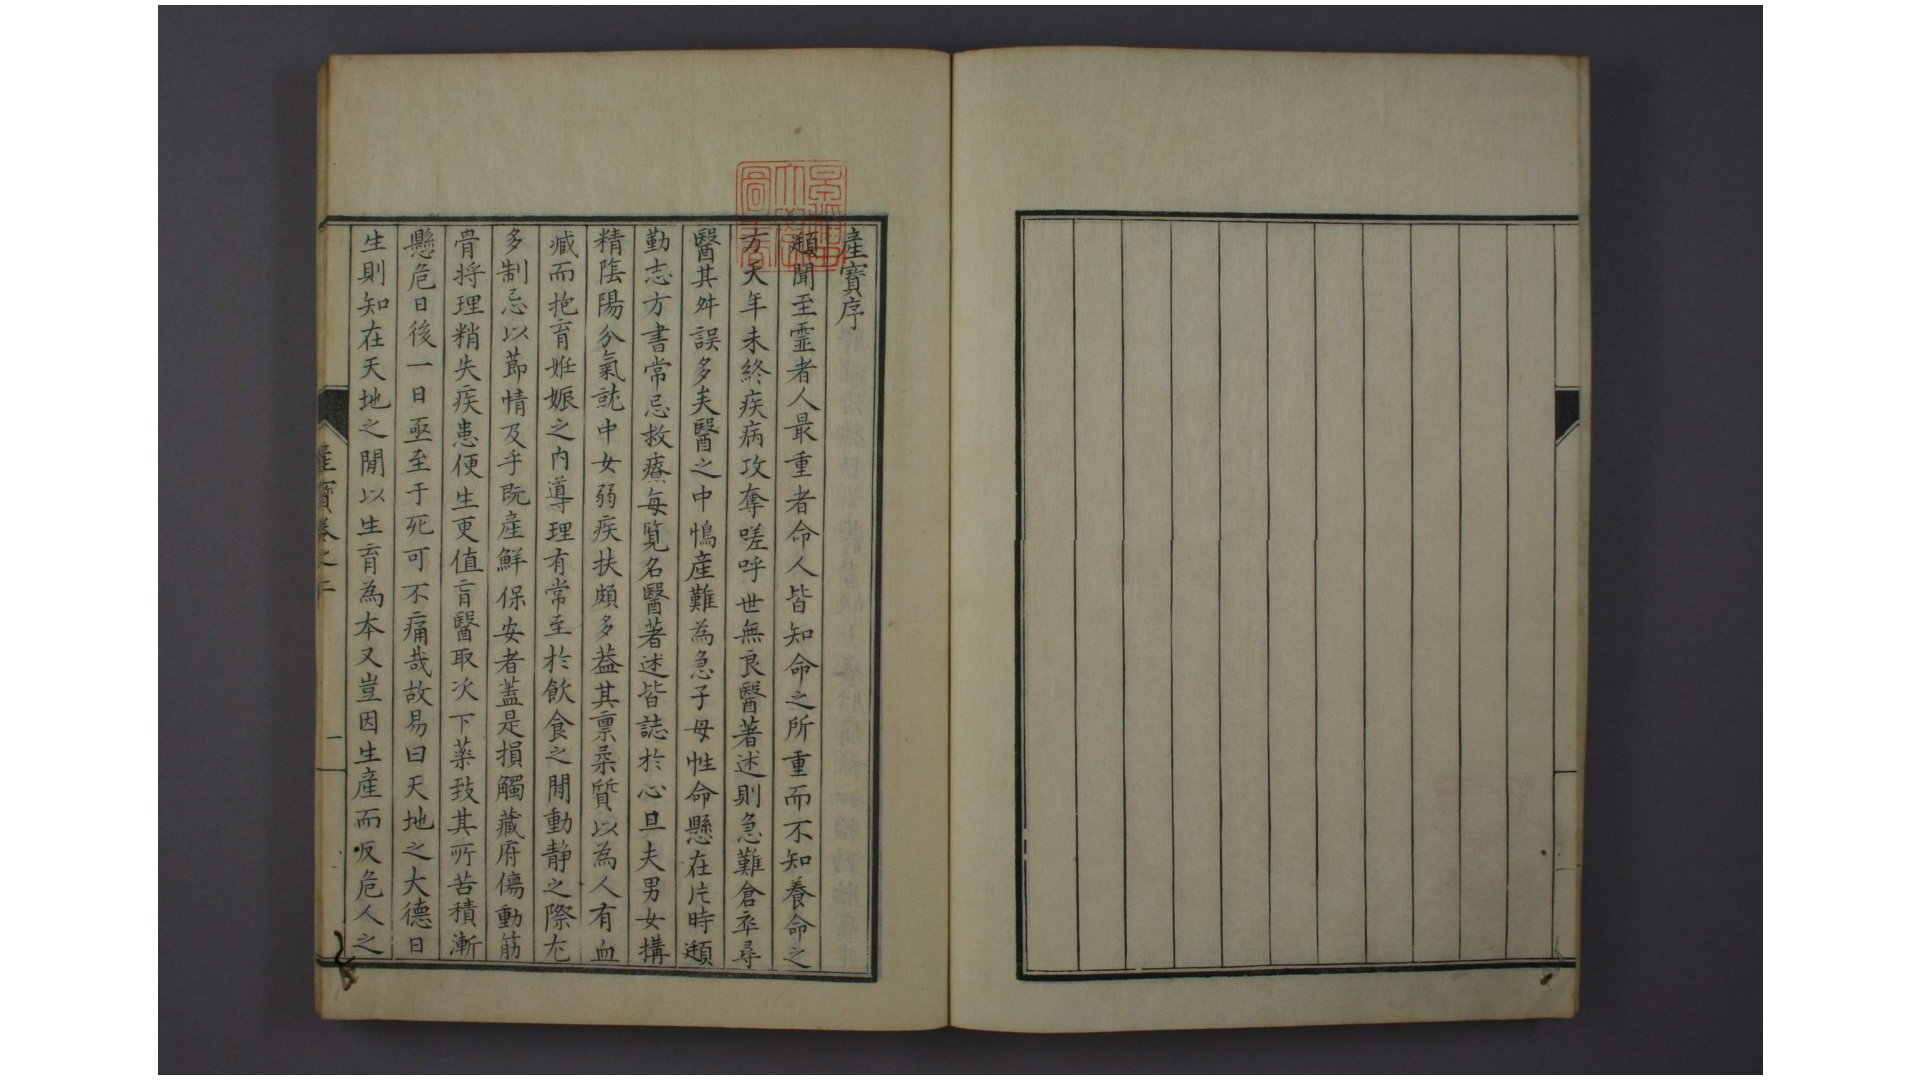 產寶序
頲聞至靈者人最重者命人皆知命之所重而不知養命之
方天年未終疾病攻奪嗟呼世無良醫著述則急難倉卒尋
醫其舛誤多矣醫之中惟產難為急子母性命懸在片時頲
勤志方書常忌救療每覧名醫著述皆誌於心旦夫男女搆
精隂陽分氣就中女弱疾扶頗多葢其禀桑質以為人有血
臧而抱育姙娠之内導理有常至於飲食之閒動静之際尢
多制忌以莭情及乎既產鮮保安者蓋是損觸藏府傷動筋
骨将理稍失疾患便生更值盲醫取次下薬致其所苦積漸
懸危日後一日亟至于死可不痛哉故易曰天地之大德曰
生則知在天地之閒以生育為本又豈因生產而反危人之
產寶卷之
一